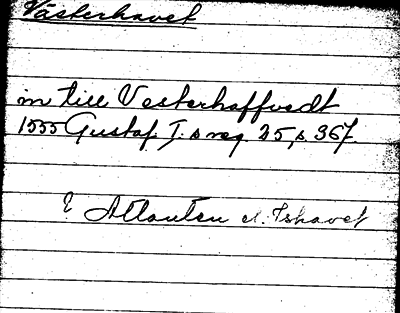 Västerhavet
in till Vesterhaffvedt
1555 Gustaf I:s reg. 25 s. 367.
? Atlanten el. Ishavet